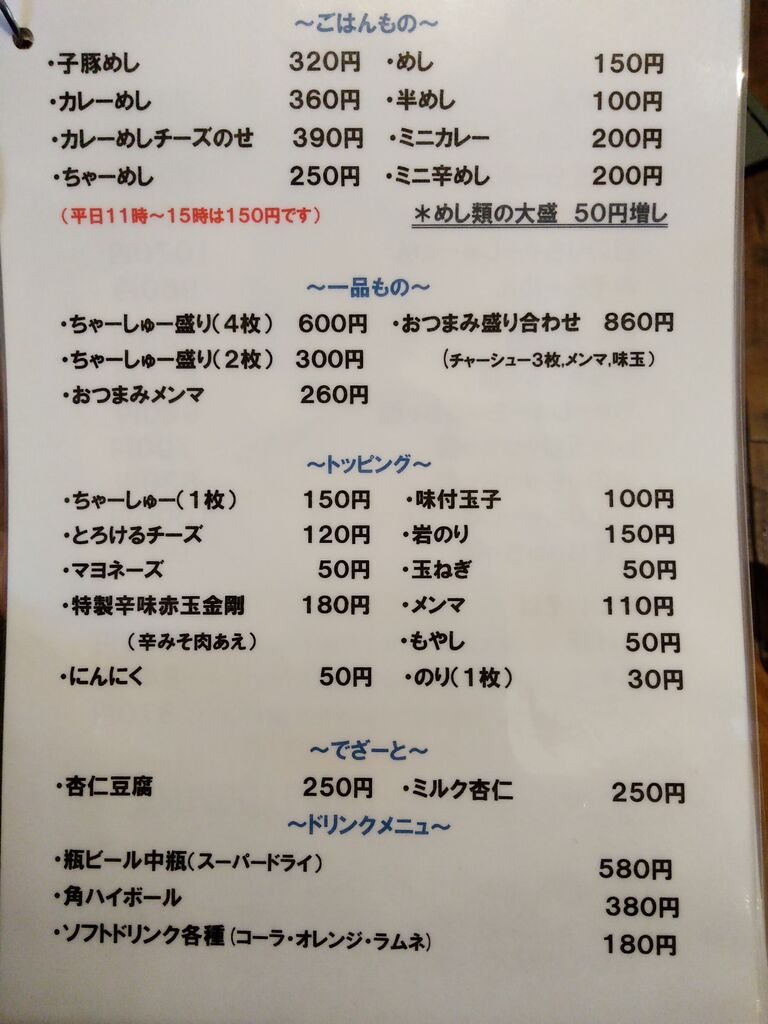 ～ごはんもの～
・子豚めし 320円 ・めし 150円
・カレーめし 360円 ・半めし 100円
・カレーめしチーズのせ 390円 ・ミニカレー 200円
・ちゃーめし 250円 ・ミニ辛めし 200円
（平日11時～15時は150円です） ＊めし類の大盛 50円増し
～一品もの～
・ちゃーしゅー盛り（４枚） 600円 ・おつまみ盛り合わせ 860円
・ちゃーしゅー盛り（２枚） 300円 （チャーシュー３枚,メンマ,味玉）
・おつまみメンマ 260円
～トッピング～
・ちゃーしゅー（１枚） 150円 ・味付玉子 100円
・とろけるチーズ 120円 ・岩のり 150円
・マヨネーズ 50円 ・玉ねぎ 50円
・特製辛味赤玉金剛 180円 ・メンマ 110円
（辛みそ肉あえ） ・もやし 50円
・にんにく 50円 ・のり（１枚） 30円
～でざーと～
・杏仁豆腐 250円 ・ミルク杏仁 250円
～ドリンクメニュー～
・瓶ビール中瓶（スーパードライ） 580円
・角ハイボール 380円
・ソフトドリンク各種（コーラ・オレンジ・ラムネ） 180円